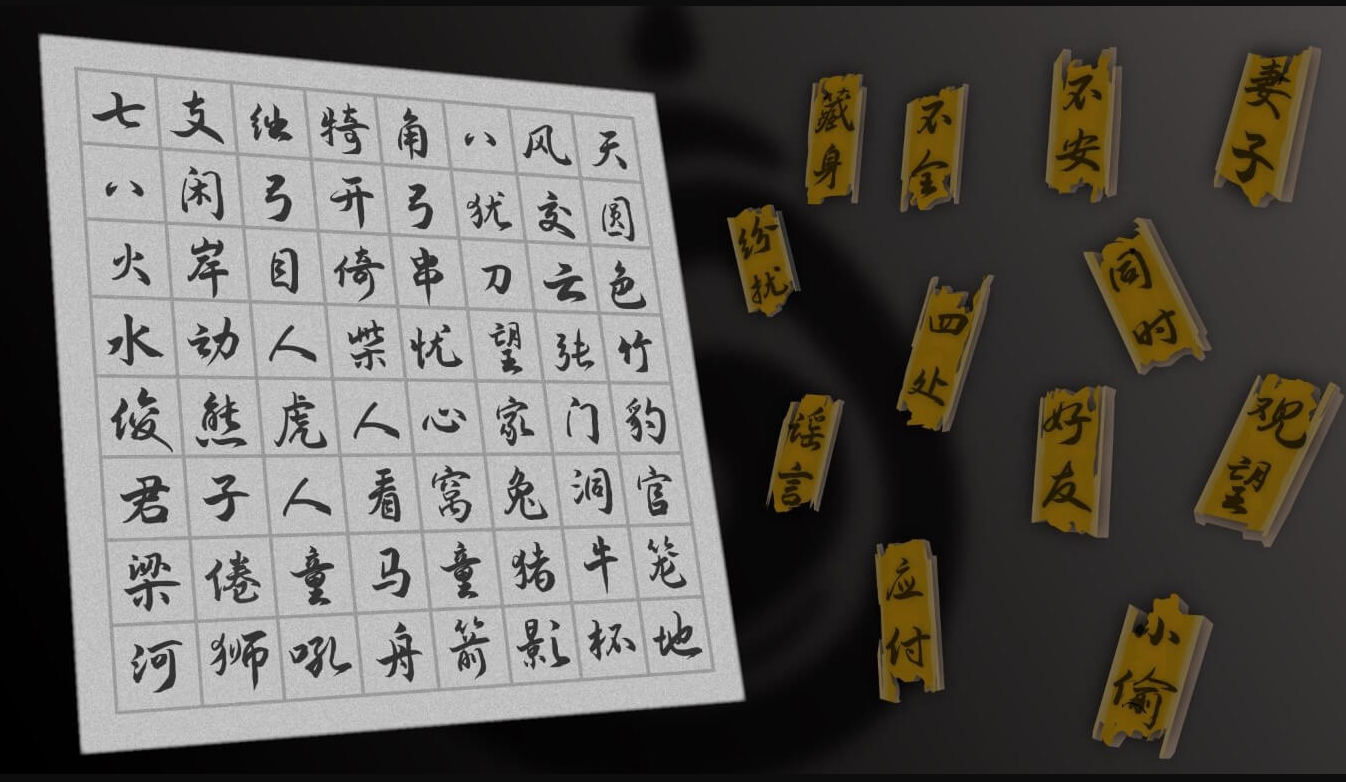 七支绌犄角八风天
八闲弓开弓犹交圆
火岸目倚串刀云色
水动人柴忧望张竹
俊熊虎人心家门豹
君子人看窝兔洞官
梁倦童马童猪牛笼
河狮吼舟箭影杯地
藏身
不全
不安
妻子
纷扰
同时
四处
谣言
好友
观望
应付
小偷